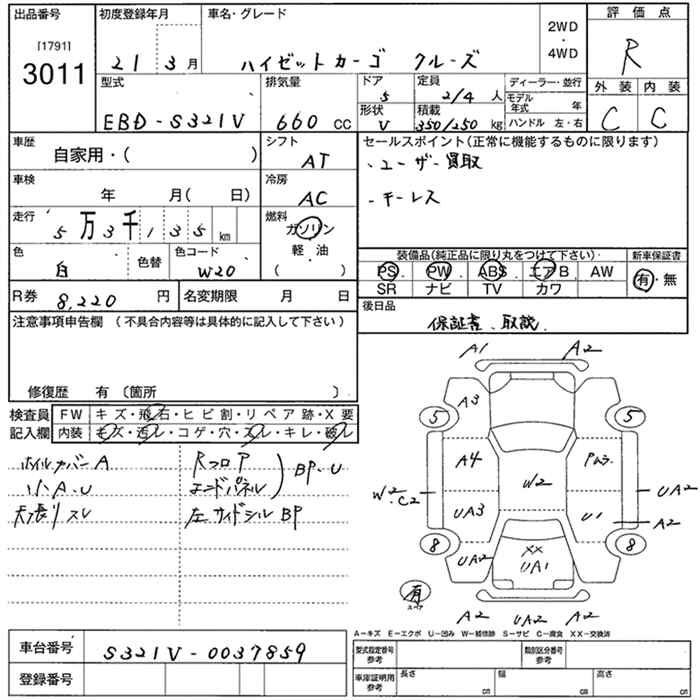 出品番号 初度登録年月 車名・グレード 2WD・4WD 評価点
[1791]
3011 21 3月 ハイゼットカーゴ クルーズ R
型式 排気量 ドア 定員 ディーラー・並行 外装 内装
5 2/4人 モデル年式 年
EBD-S321V 660 CC 形状 積載 ハンドル 左・右 C C
V 350/250 kg
車歴 シフト セールスポイント(正常に機能するものに限ります)
自家用・( ) AT ・ユーザー買取
車検 冷房
年 月( 日) AC ・キーレス
走行 燃料
5万3千135km ガソリン
色 色替 色コード 軽・油 装備品(純正品に限り丸をつけて下さい) 新車保証書
白 W20 ( ) PS PW ABS エアB AW 有・無
SR ナビ TV カワ
R券 8,220円 名変期限 月 日 後日品
注意事項申告欄 (不具合内容等は具体的に記入して下さい) 保証書、取説
修復歴 有 〔箇所 〕
検査員 FW キズ・飛石・ヒビ割・リペア跡・X要
記入欄 内装 キズ・汚レ・コゲ・穴・スレ・キレ・破レ
ホイルカバーA Rフロア
小A.U エンドパネル BP.U
天張りスレ 左サイドシル BP
A1 A2
A3
5 5
A4
W2 W2.C2 UA2
UA3 U1 A2
8 8
UA2 XX UA1
有
スペア
A2 UA2 A2
A-キズ E-エクボ U-凹み W-補修跡 S-サビ C-腐食 XX-交換済
車台番号 S321V-0037859 型式指定番号 参考 類別区分番号 参考
登録番号 車庫証明用 参考 長さ cm 幅 cm 高さ cm